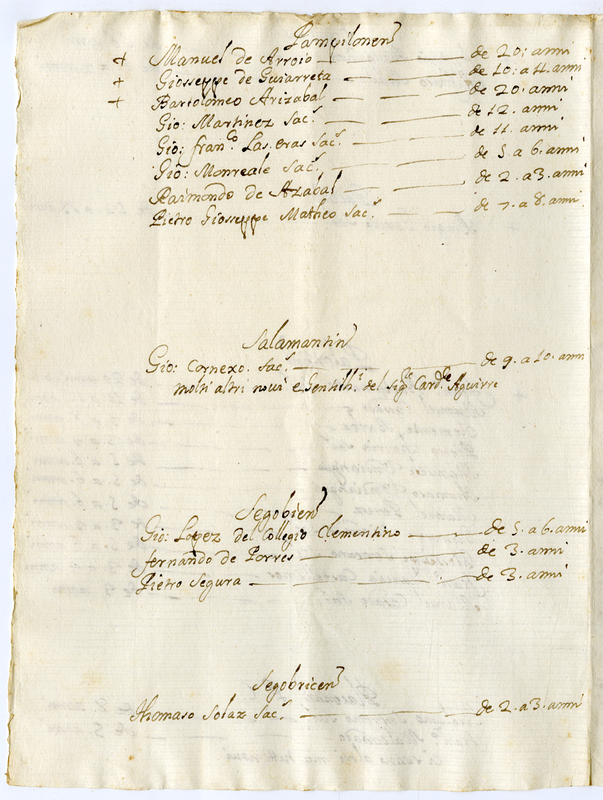 Pampilonen
+ Manuel de Arroio — de 20: anni
+ Giosseppe de Guiarreta — de 10: a 11. anni
+ Bartolomeo Arizabal — de 20. anni
Gio: Martinez Sac.ᵉ — de 12. anni
Gio: fran.ᶜᵒ Las. eras Sac.ᵉ — de 11. anni
Gio: Monreale Sac.ᵉ — de 5. a 6. anni
Raimondo de Azabal — de 2. a 3. anni
Pietro Giosseppe Matheo Sac.ᵉ — de 7. a 8. anni
Salamantin
Gio: Cornexo. Sac.ᵉ — de 9. a 10. anni
molti altri novi e Gentilh.ⁱ del Sig.ʳᵉ Card.ˡᵉ Aguirre
Segobien
Gio: Lopez del Collegio Clementino — de 5. a 6. anni
fernando de Porres — de 3. anni
Pietro Segura — de 3. anni
Segobricen
Thomaso Solaz Sac.ᵉ — de 2. a 3. anni